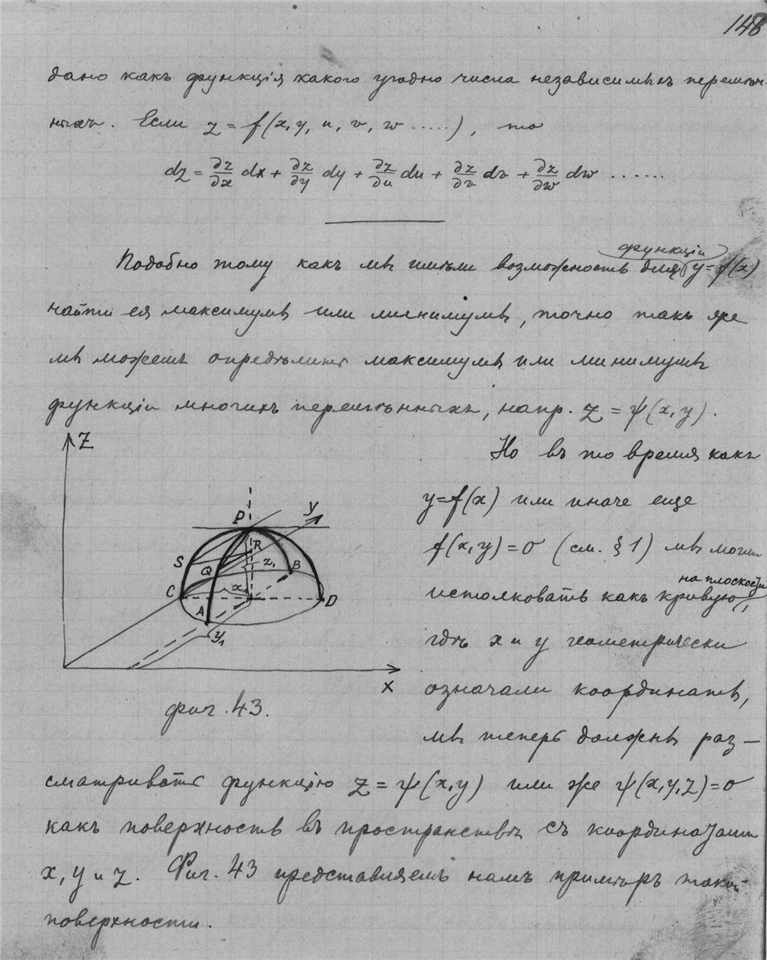 148
дано какъ функція какого угодно числа независимыхъ перемѣн-
ныхъ. Если z = f(x, y, u, v, w .....), то
dz = ∂z/∂x dx + ∂z/∂y dy + ∂z/∂u du + ∂z/∂v dv + ∂z/∂w dw ......
функціи
Подобно тому какъ мы имѣли возможность для y = f(x)
найти ея максимумъ или минимумъ, точно такъ же
мы можемъ опредѣлить максимумъ или минимумъ
функціи многихъ перемѣнныхъ, напр. z = ψ(x, y).
Но въ то время какъ
y = f(x) или иначе еще
f(x, y) = 0 (см. § 1) мы могли
на плоскости
истолковать какъ кривую,
гдѣ x и y геометрически
означали координаты,
мы теперь должны раз-
Z
P
Y
R
S
Q
z₁
B
C
x₁
A
D
y₁
X
фиг. 43.
сматривать функцію z = ψ(x, y) или же ψ(x, y, z) = 0
какъ поверхность въ пространствѣ съ координатами
x, y и z. Фиг. 43 представляетъ намъ примѣръ такой
поверхности.